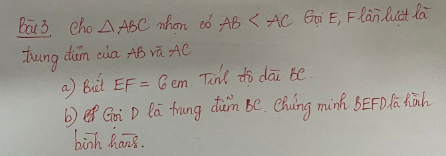 Bài 3. Cho △ABC nhọn có AB < AC. Gọi E, F lần lượt là
trung điểm của AB và AC
a) Biết EF = 6 cm Tính độ dài BC
b) Gọi D là trung điểm BC. Chứng minh BEFD là hình
bình hành.